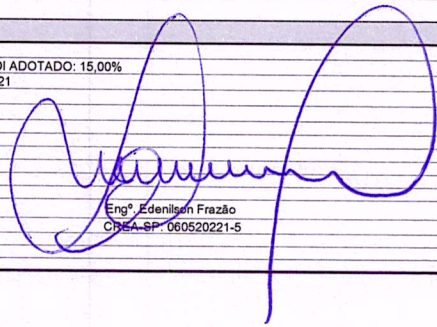 DI ADOTADO: 15,00%
21
Engº. Edenilson Frazão
CREA-SP: 060520221-5